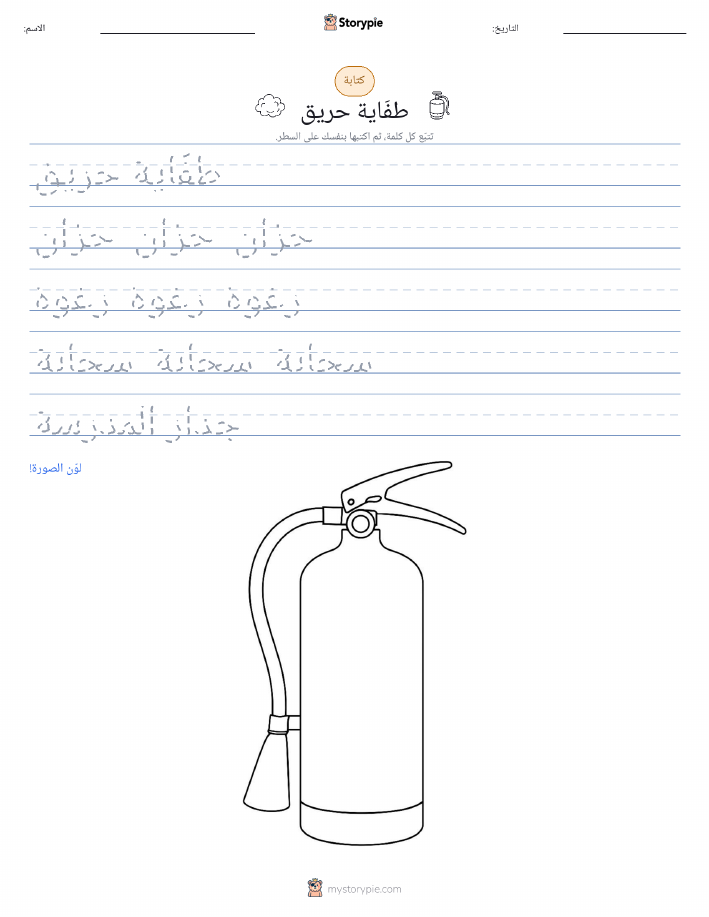 Storypie
الاسم:
التاريخ:
كتابة
طفَاية حريق
تتبّع كل كلمة، ثم اكتبها بنفسك على السطر.
طفَاية حريق
خزان خزان خزان
رغوة رغوة رغوة
سحابة سحابة سحابة
جدار المدرسة
لوّن الصورة!
mystorypie.com